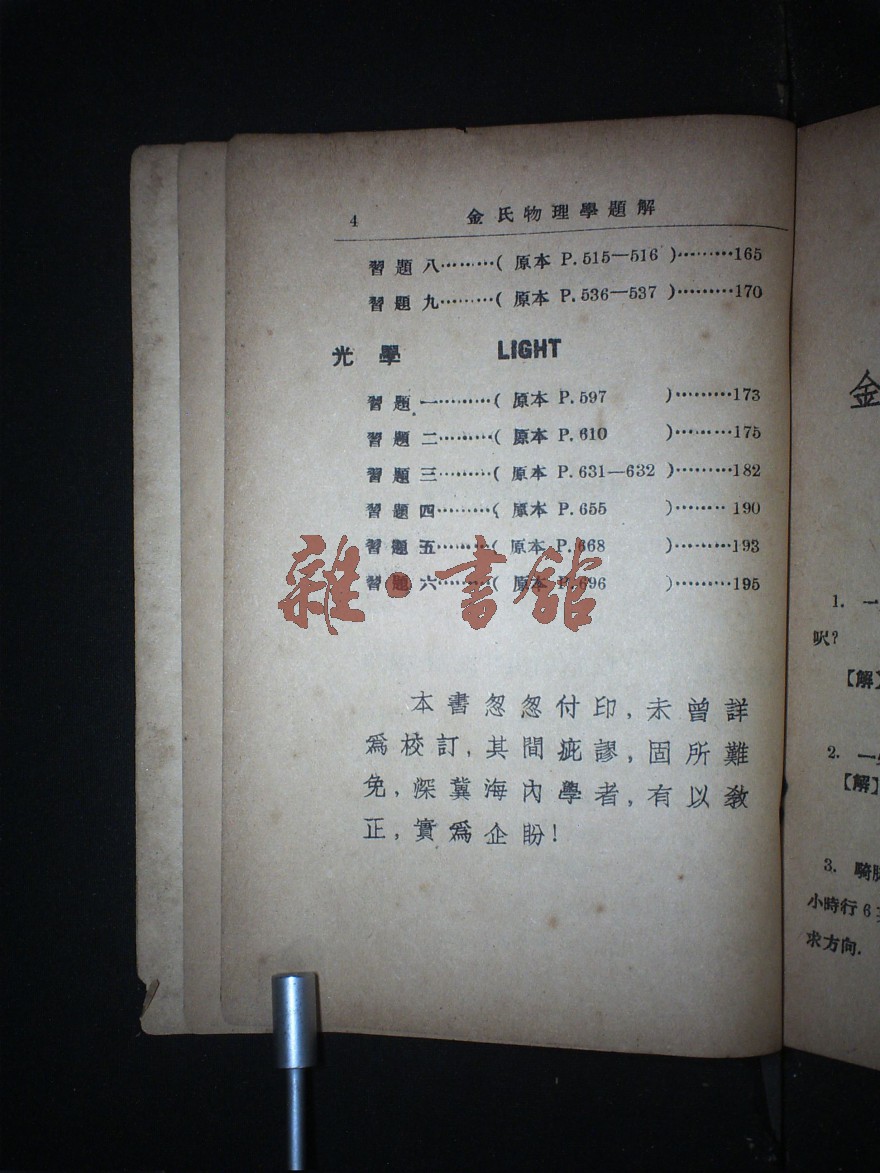 4 金氏物理學題解
習題八………( 原本 P.515—516 )………165
習題九………( 原本 P.536—537 )………170
光學 LIGHT
習題一………( 原本 P.597 )………173
習題二………( 原本 P.610 )………175
習題三………( 原本 P.631—632 )………182
習題四………( 原本 P.655 )………190
習題五………( 原本 P.668 )………193
習題六………( 原本 P.696 )………195
雜·書館
本書怱怱付印,未曾詳
爲校訂,其間疵謬,固所難
免,深冀海內學者,有以教
正,實爲企盼!
金
1. 一
呎?
【解】
2. 一
【解】
3. 騎
小時行 6
求方向.